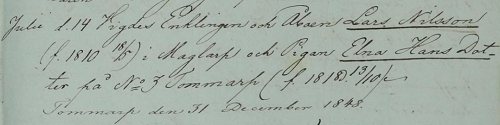 Julii d. 14 Vigdes Enklingen och Åboen Lars Nilsson
(f. 1810 18/5) i Maglarp och Pigan Elna Hans Dot-
ter på No 3 Tommarp (f. 1818 13/10)
Tommarp den 31 December 1848.